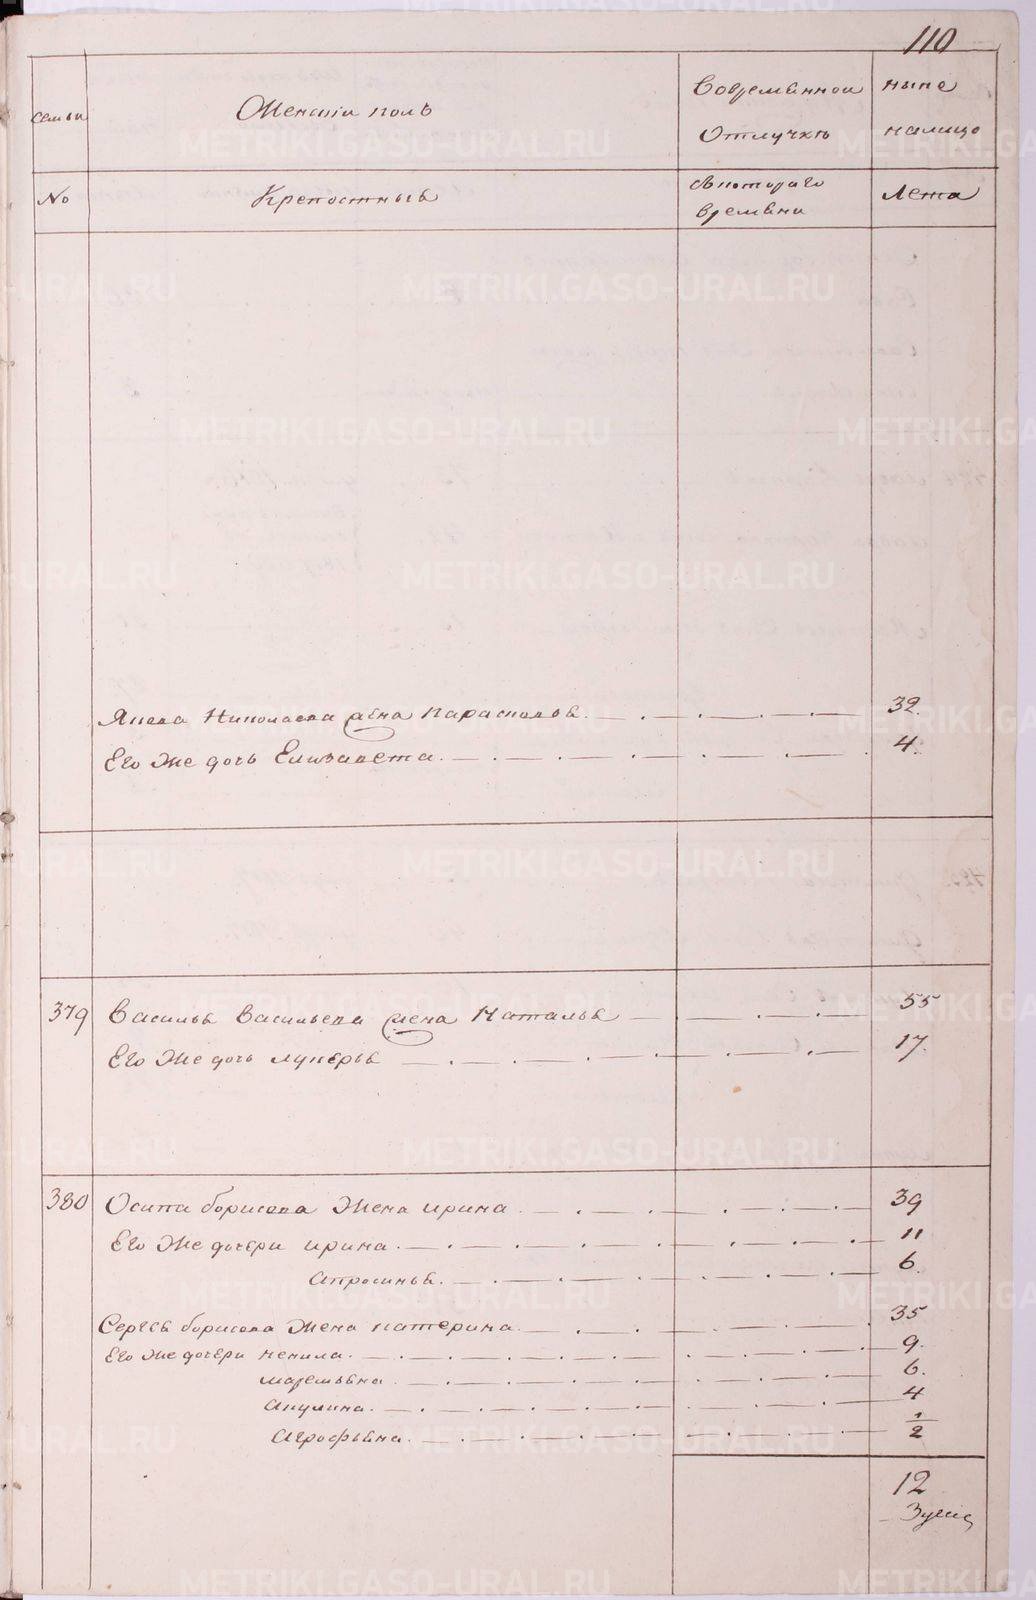 110
семьи
Женскiй полъ
Во временной
отлучкѣ
ныне
налицо
No
Крепостныя
съ котораго
времѣни
Лета
Якова Николаева жена Парасковья 32.
Его же дочь Елизавета 4.
379 Василья Васильева жена Наталья 55
Его же дочь лукерья 17.
380 Осипа борисова жена ирина 39
Его же дочери ирина 11
апросинья 6
Сергея борисова жена катерина 35
Его же дочери ненила 9.
маремьяна 6.
акулина 4
Аграфѣна 1/2
12
METRIKI.GASO-URAL.RU